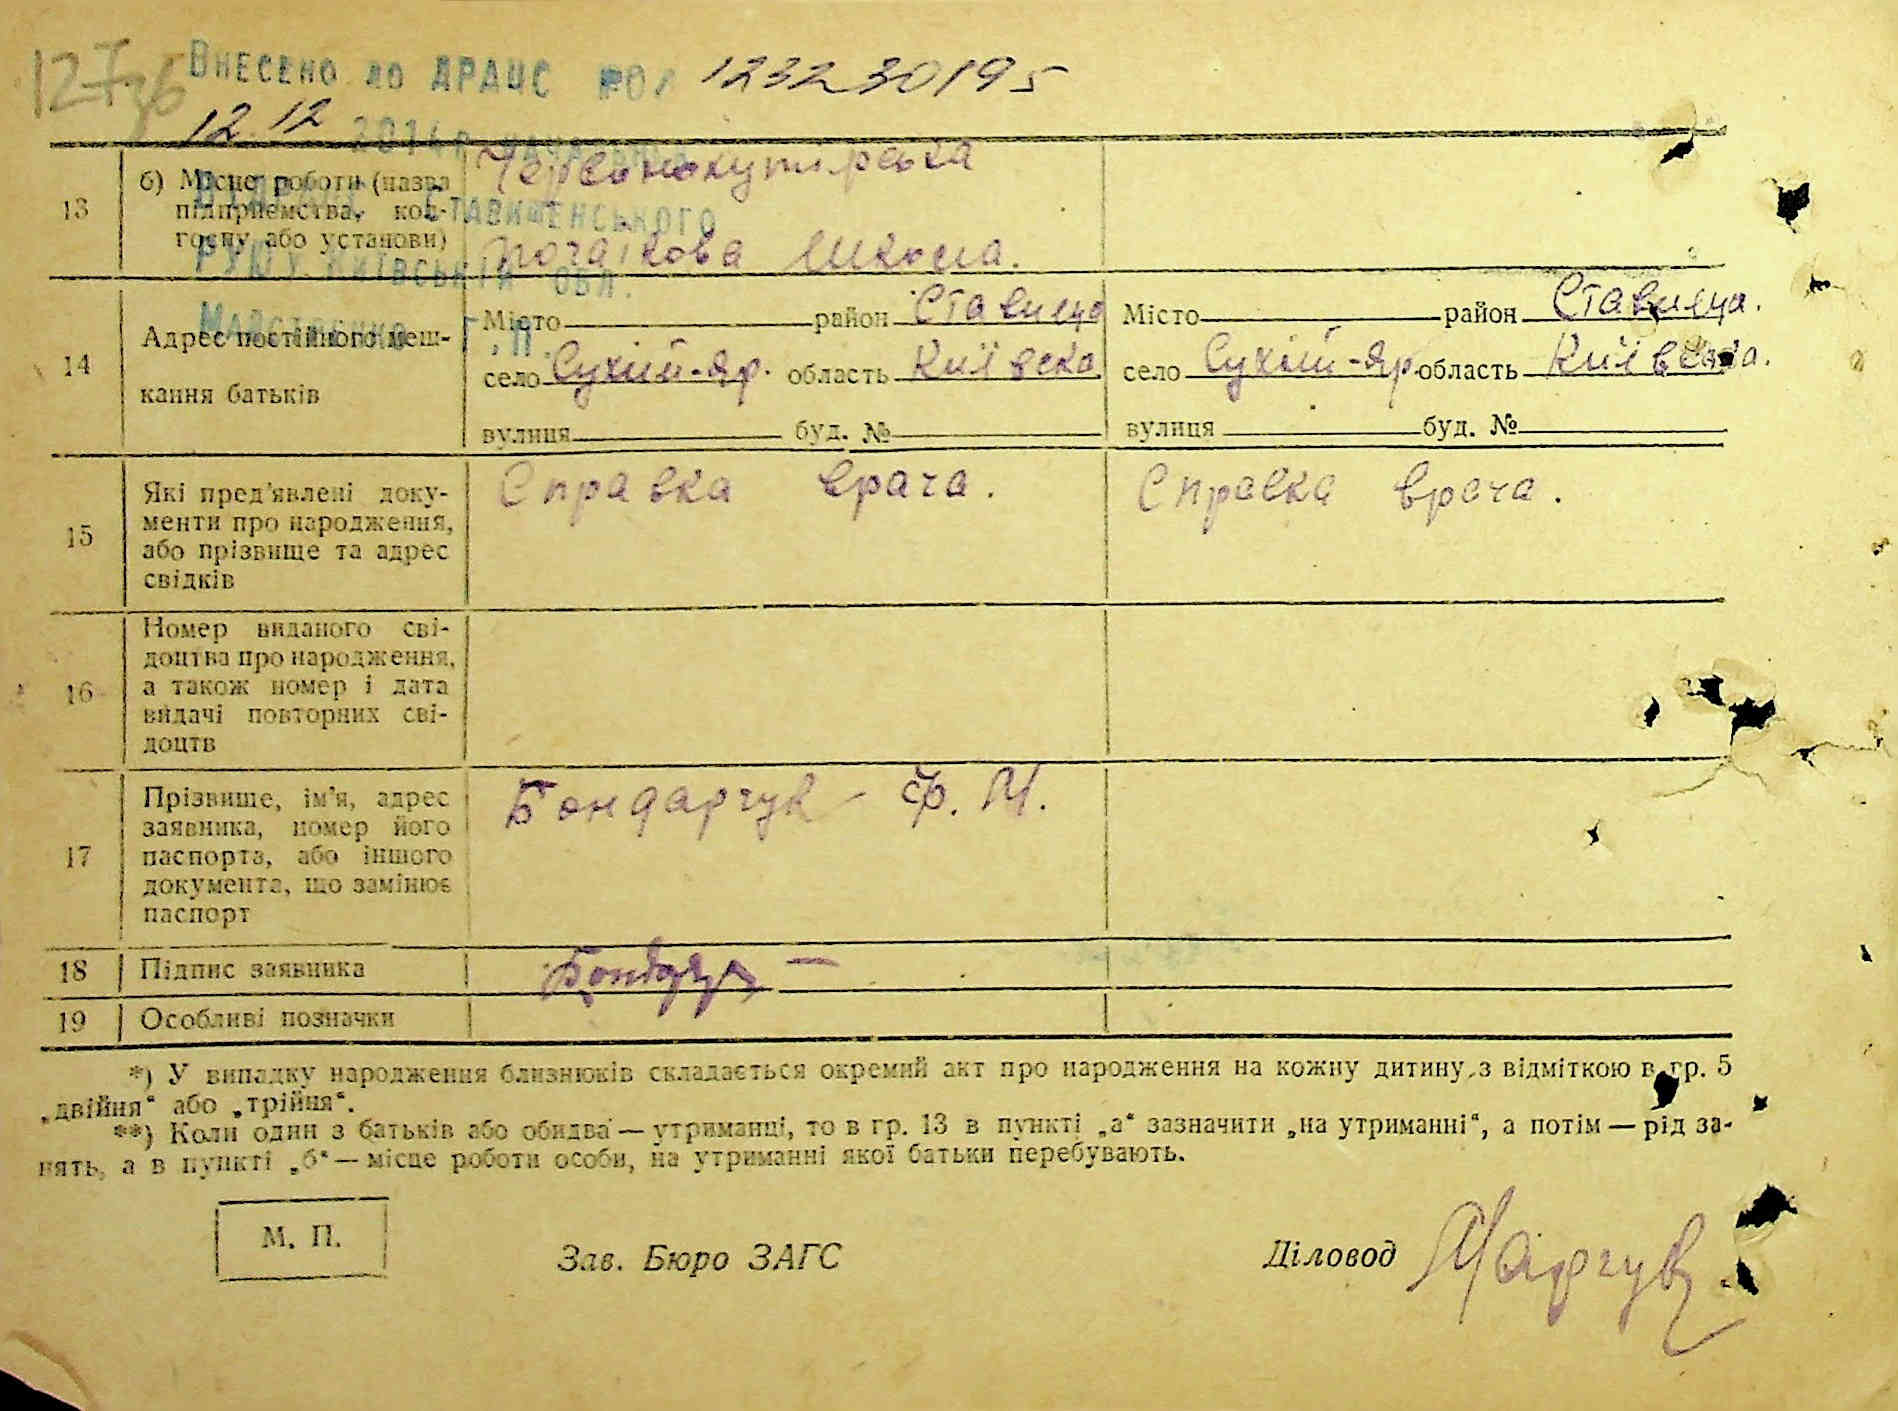 127зв
Внесено до ДРАЦС №0/ 123230195
12.12 2014р.
13 б) Місце роботи (назва підприємства, кол-госпу або установи)
Червонохутірська
початкова школа.
ВДРАЦС Ставищенського
РУЮ у Київській обл.
Г.П.
14 Адрес постійного меш-
кання батьків
Місто район Ставище Місто район Ставища.
село Сухий-яр. область Київска село Сухий-яр. область Київська.
вулиця буд. № вулиця буд. №
15 Які пред'явлені доку-
менти про народження,
або прізвище та адрес
свідків
Справка врача. Справка врача.
16 Номер виданого сві-
доцтва про народження,
а також номер і дата
видачі повторних сві-
доцтв
17 Прізвище, ім'я, адрес
заявника, номер його
паспорта, або іншого
документа, що замінює
паспорт
Бондарчук – Ф. М.
18 Підпис заявника
19 Особливі позначки
*) У випадку народження близнюків складається окремий акт про народження на кожну дитину з відміткою в гр. 5
„двійня“ або „трійня“.
**) Коли один з батьків або обидва — утриманці, то в гр. 13 в пункті „а“ зазначити „на утриманні“, а потім — рід за-
нять, а в пункті „б“ — місце роботи особи, на утриманні якої батьки перебувають.
М. П.
Зав. Бюро ЗАГС Діловод